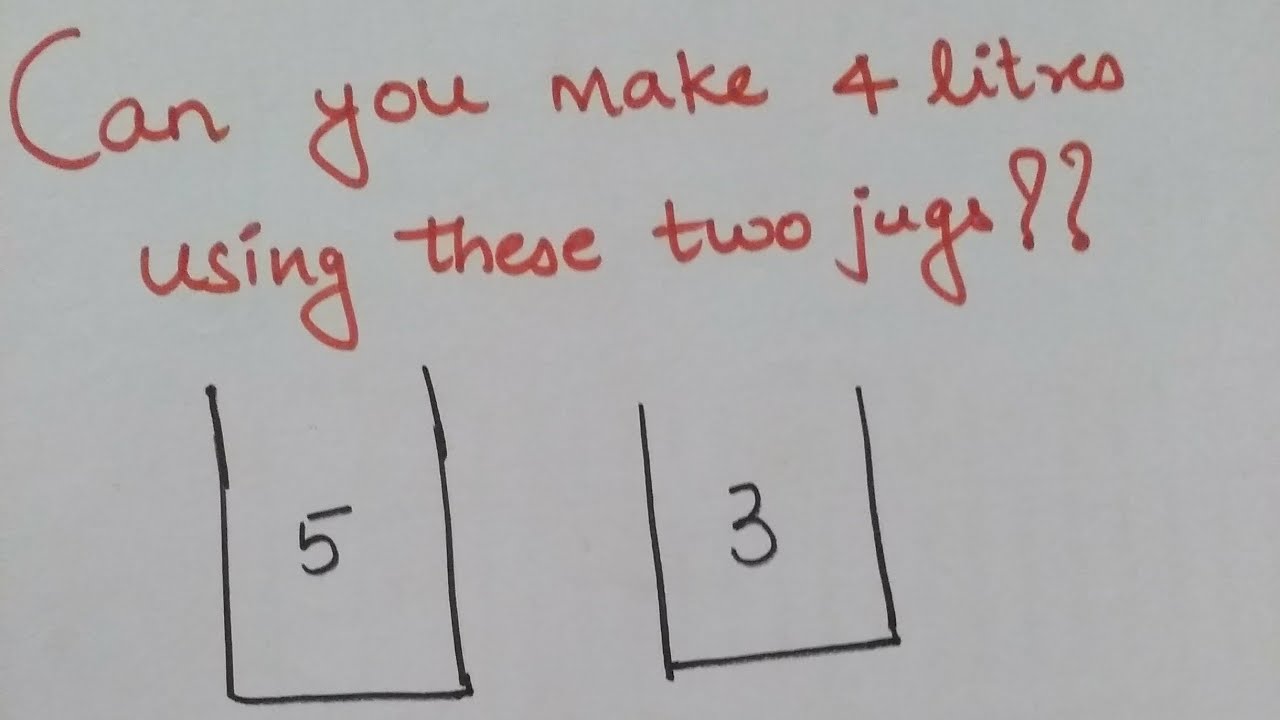 Can you make 4 litres
using these two jugs??
5 3